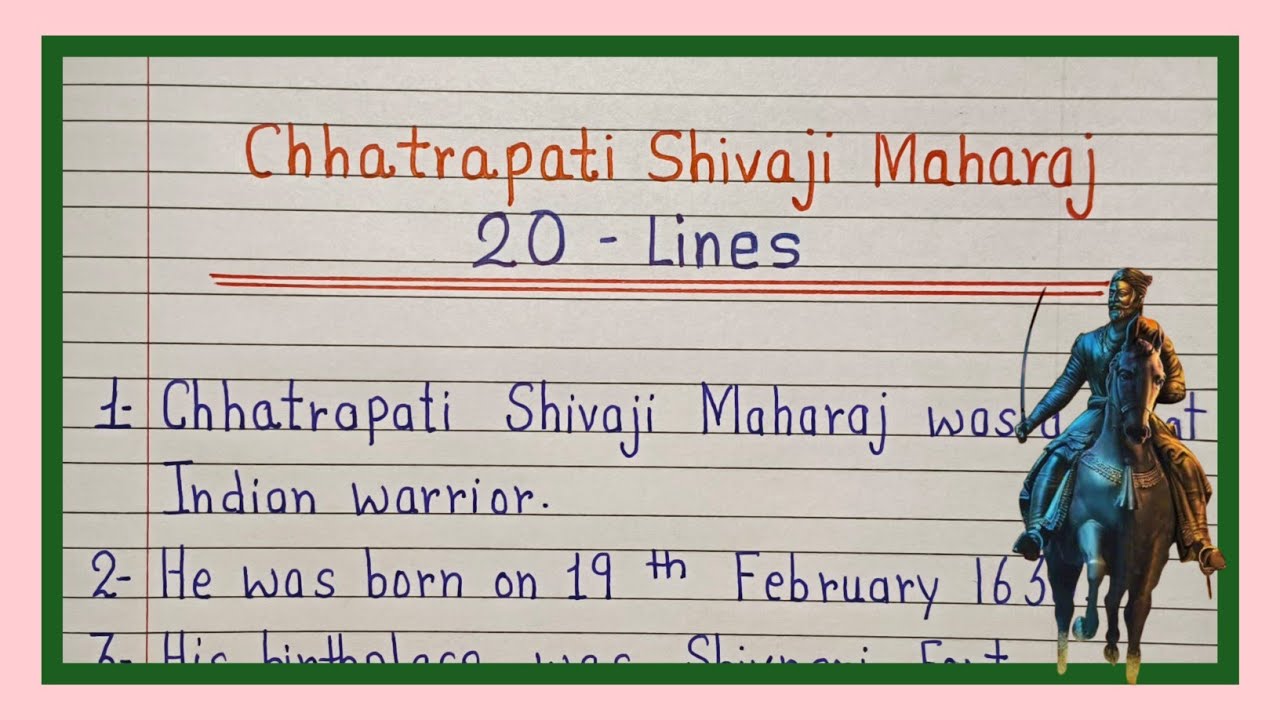 Chhatrapati Shivaji Maharaj
20 - Lines
1- Chhatrapati Shivaji Maharaj was a
Indian warrior.
2- He was born on 19 th February 163
3- His birthplace was Shivneri Fort